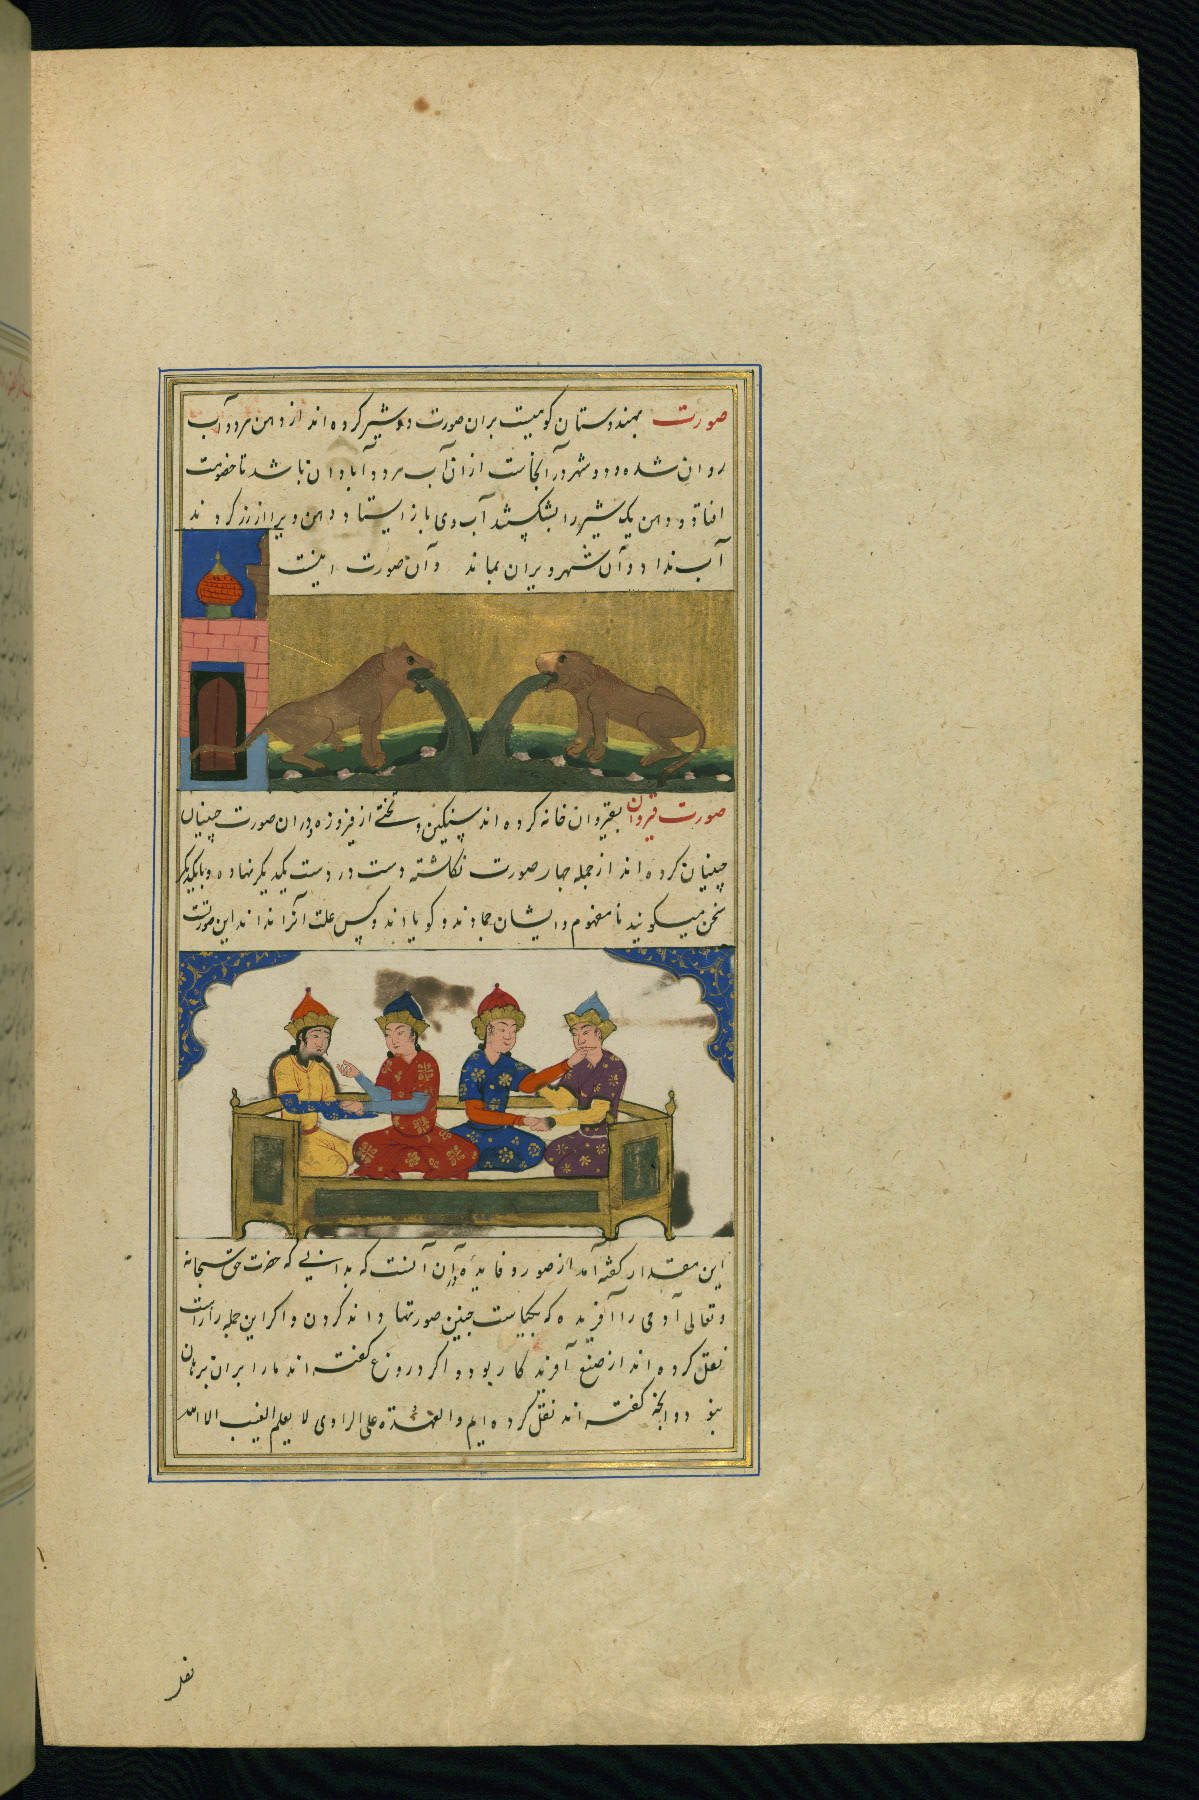 صورت بهندوستان کوهیست بران صورت دو شیر کرده اند از دهن هر دو آب
روان شده و دو شهر در آنجاست از آن آب هر دو آبادان باشد تا خصومت
افتاد و دهن یک شیر را بشکستند آب وی باز ایستاد و دهن ویرا از زر کردند
آب نداد و آن شهر ویران بماند و آن صورت اینست
صورت قیروان بقیروان خانه کرده اند سنگین و تختی از فیروزه و دران صورت چینیان
چینیان کرده اند از جمله چهار صورت نگاشته دست در دست یکدیگر نهاده و با یکدیگر
سخن میگویند نامفهوم و ایشان جمادند و گویا اند و کس علت آنرا نداند این صورتست
این مقدار گفته آمد از صور و فایده درآن آنست که بدانی که حضرت حق سبحانه
و تعالی آدمی را آفریده که بجایاست چنین صورتها داند کردن و اگر این جمله راراست
نقل کرده اند از صنع آفرند کار بود و اگر دروغ گفته اند ما را بران برهان
نبود و آنچه گفته اند نقل کرده ایم والعهدة علی الراوی لا یعلم الغیب الا الله